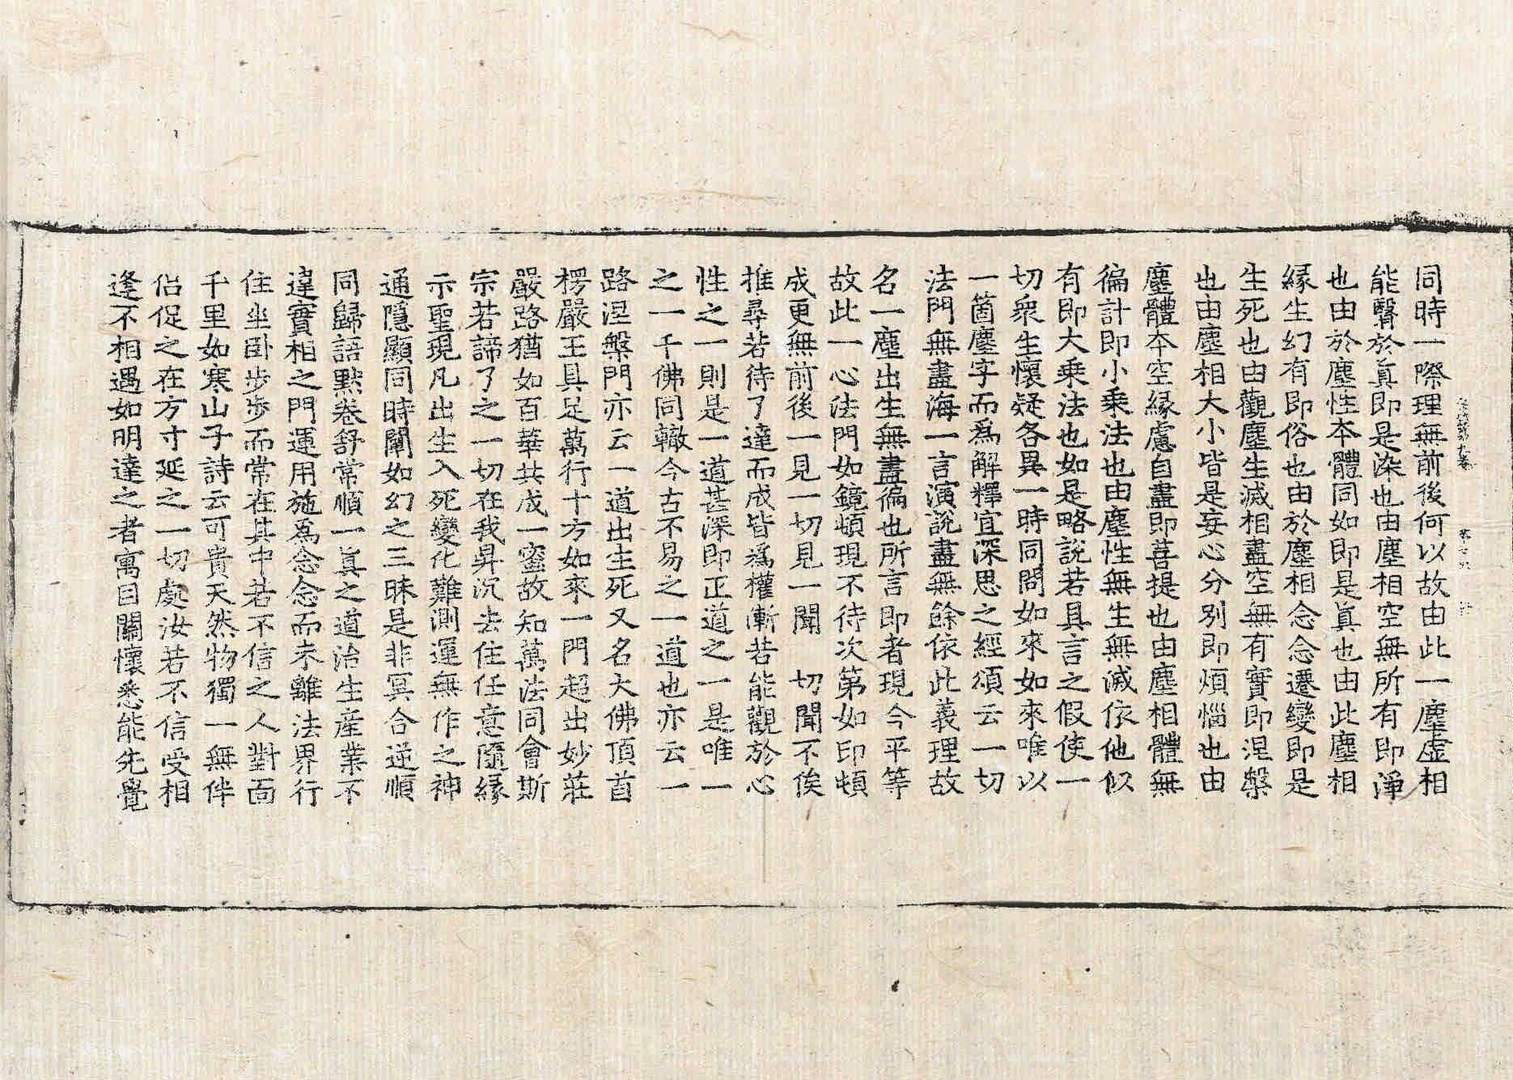 同時一際理無前後何以故由此一塵虛相
能翳於眞即是染也由塵相空無所有即淨
也由於塵性本體同如即是眞也由此塵相
緣生幻有即俗也由於塵相念念遷變即是
生死也由觀塵生滅相盡空無有實即涅槃
也由塵相大小皆是妄心分別即煩惱也由
塵體本空緣慮自盡即菩提也由塵相體無
徧計即小乘法也由塵性無生無滅依他似
有即大乘法也如是略說若具言之假使一
切衆生懷疑各異一時同問如來如來唯以
一箇塵字而爲解釋宜深思之經頌云一切
法門無盡海一言演說盡無餘依此義理故
名一塵出生無盡徧也所言即者現今平等
故此一心法門如鏡頓現不待次第如印頓
成更無前後一見一切見一聞 切聞不俟
推尋若待了達而成皆爲權漸若能觀於心
性之一則是一道甚深即正道之一是唯一
之一千佛同轍今古不易之一道也亦云一
路涅槃門亦云一道出生死又名大佛頂首
楞嚴王具足萬行十方如來一門超出妙莊
嚴路猶如百華共成一蜜故知萬法同會斯
宗若諦了之一切在我昇沉去住任意隨緣
示聖現凡出生入死變化難測運無作之神
通隱顯同時闡如幻之三昧是非冥合逆順
同歸語默卷舒常順一眞之道治生産業不
違實相之門運用施爲念念而未離法界行
住坐卧步步而常在其中若不信之人對面
千里如寒山子詩云可貴天然物獨一無伴
侶促之在方寸延之一切處汝若不信受相
逢不相遇如明達之者寓目關懷悉能先覺